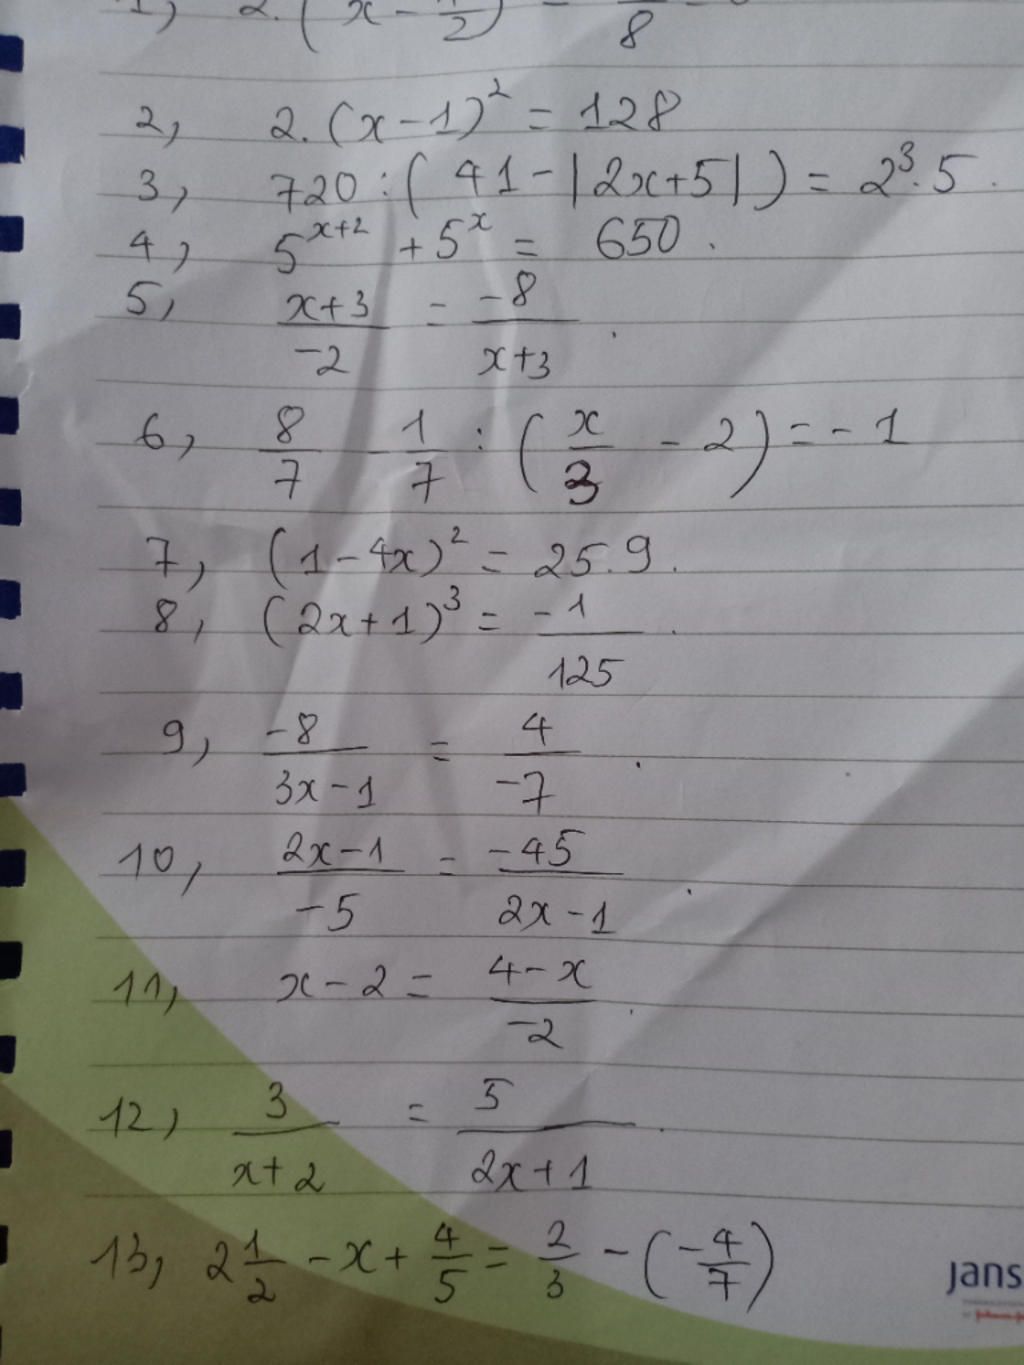 1) 2.(x - 1/2) = /8
2, 2.(x-1)² = 128
3, 720:(41-|2x+5|) = 2³.5.
4, 5^(x+2) + 5^x = 650.
5, (x+3)/(-2) = (-8)/(x+3).
6, 8/7 - 1/7 : (x/3 - 2) = -1
7, (1-4x)² = 25.9.
8, (2x+1)³ = (-1)/125.
9, (-8)/(3x-1) = 4/(-7).
10, (2x-1)/(-5) = (-45)/(2x-1).
11, x-2 = (4-x)/(-2).
12, 3/(x+2) = 5/(2x+1).
13, 2 1/2 - x + 4/5 = 2/3 - (-4/7)
Jans